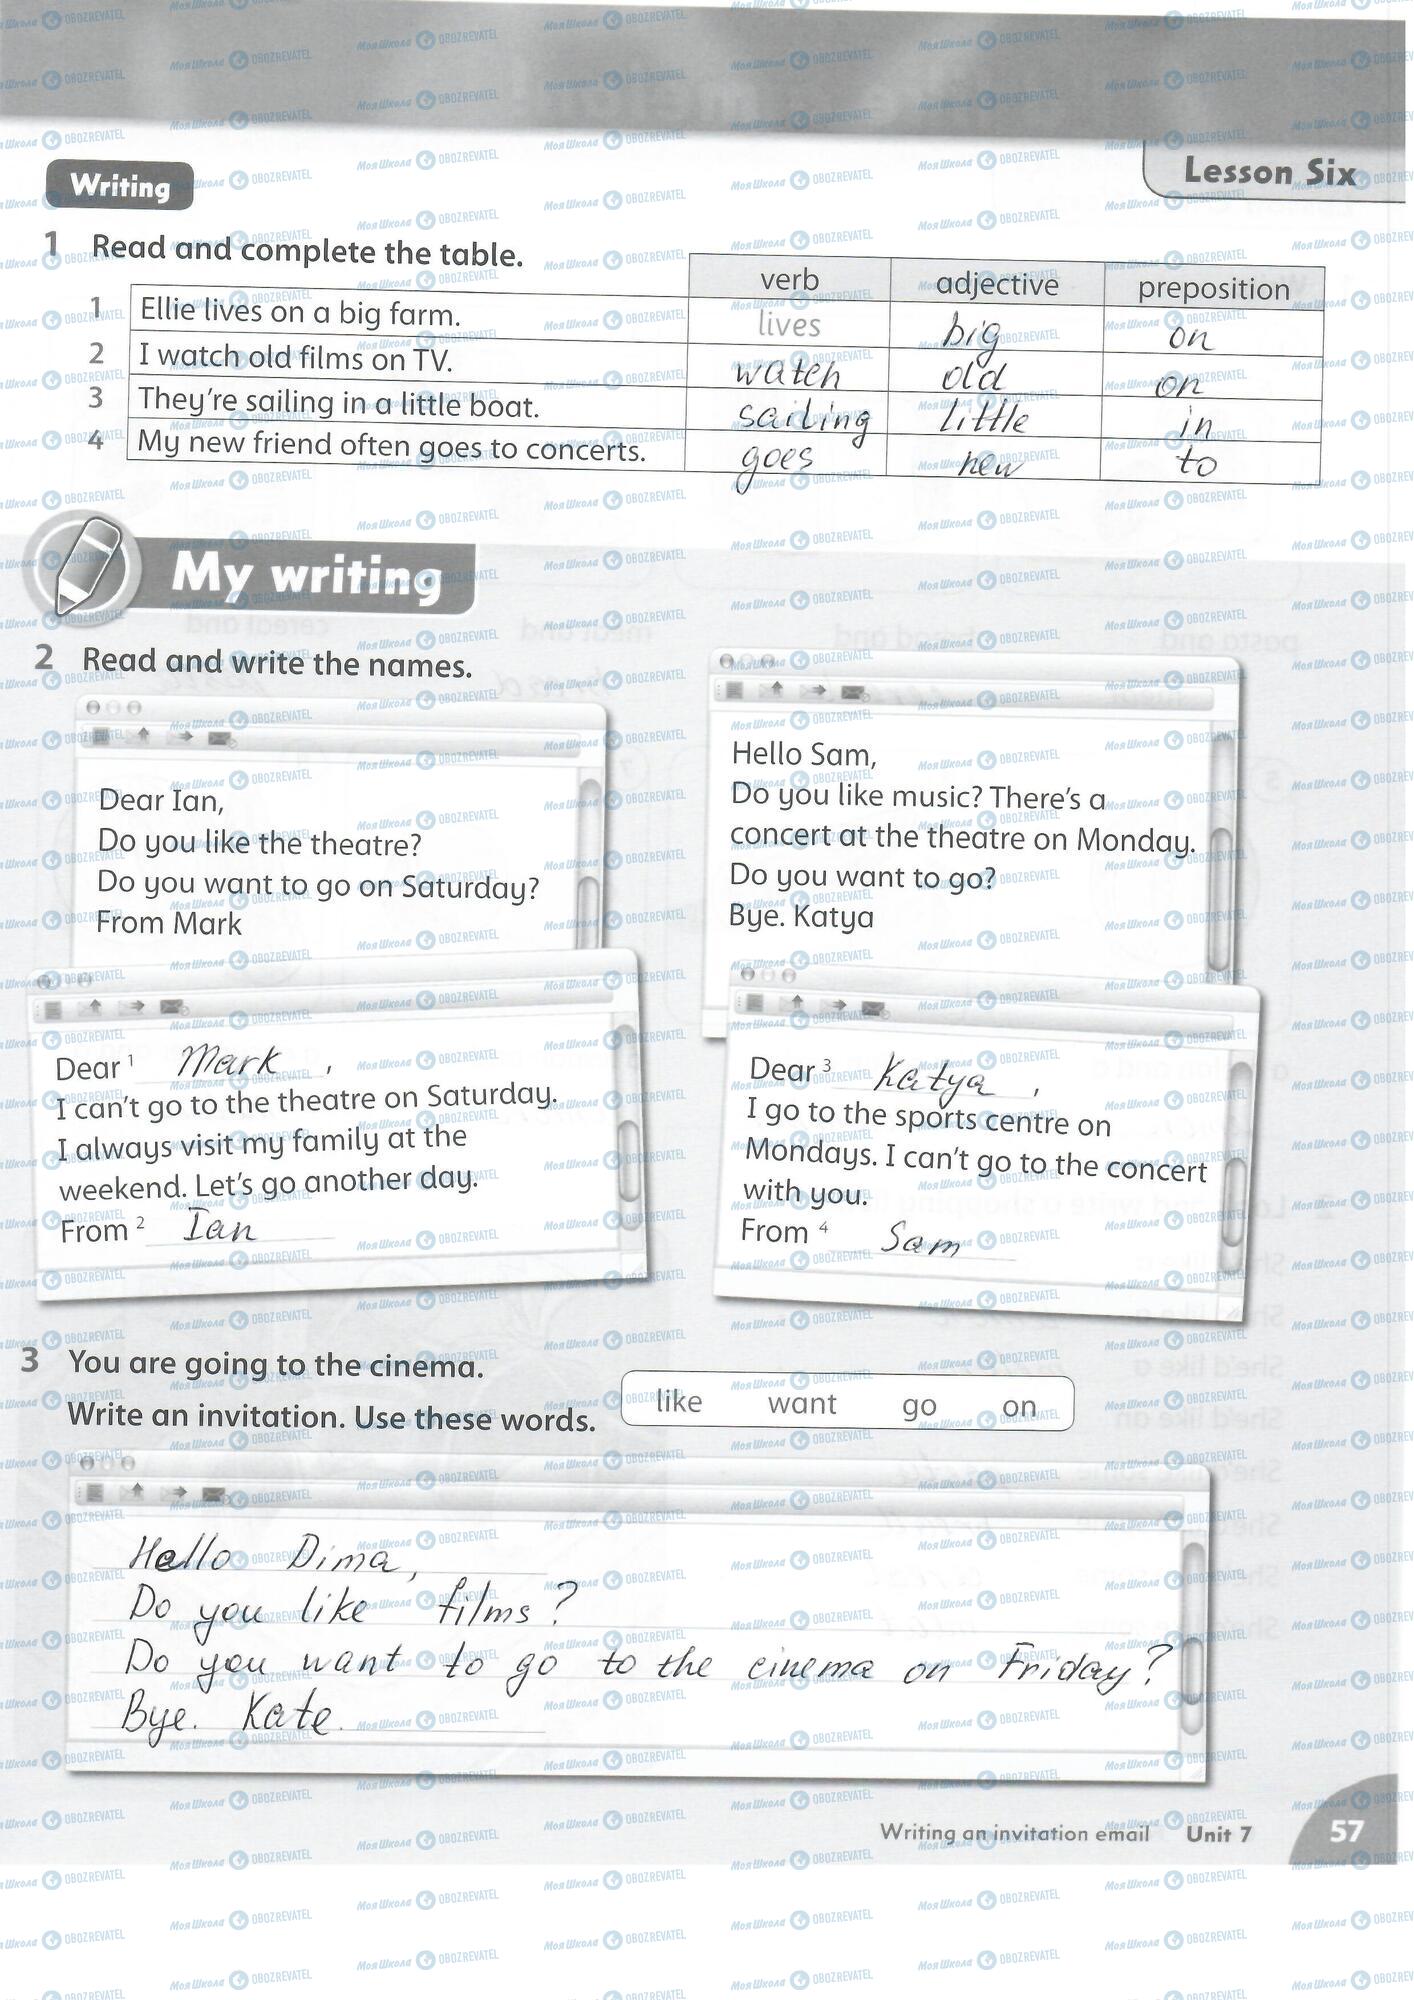 Lesson Six
Writing
1 Read and complete the table.
verb adjective preposition
1 Ellie lives on a big farm. lives big on
2 I watch old films on TV. watch old on
3 They're sailing in a little boat. sailing little in
4 My new friend often goes to concerts. goes new to
My writing
2 Read and write the names.
Dear Ian,
Do you like the theatre?
Do you want to go on Saturday?
From Mark
Dear 1 Mark,
I can't go to the theatre on Saturday.
I always visit my family at the
weekend. Let's go another day.
From 2 Ian
Hello Sam,
Do you like music? There's a
concert at the theatre on Monday.
Do you want to go?
Bye. Katya
Dear 3 Katya,
I go to the sports centre on
Mondays. I can't go to the concert
with you.
From 4 Sam
3 You are going to the cinema.
Write an invitation. Use these words.
like want go on
Hello Dima,
Do you like films?
Do you want to go to the cinema on Friday?
Bye. Kate.
Writing an invitation email Unit 7 57
МояШкола OBOZREVATEL